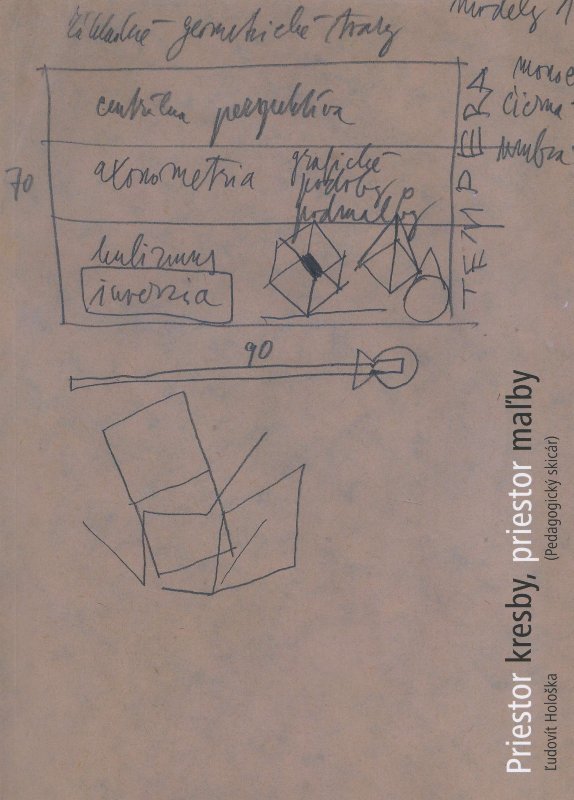 základné geometrické tvary
modely 1
centrálna perspektíva
axonometria
grafické
podoby
podmaľby
kubizmus
inverzia
TEMPERA
70
90
čierna
Priestor kresby, priestor maľby
(Pedagogický skicár)
Ľudovít Hološka